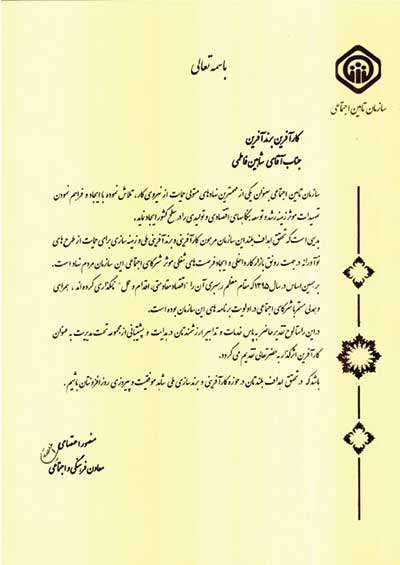 باسمه تعالی
سازمان تامین اجتماعی
کارآفرین برند آفرین
جناب آقای شاهین فاطمی
سازمان تامین اجتماعی بعنوان یکی از مهمترین نهادهای متولی حمایت از نیروی کار، تلاش نموده با ایجاد و فراهم نمودن
تمهیدات موثر زمینه رشد و توسعه بنگاههای اقتصادی و تولیدی را در سطح کشور ایجاد نماید.
بدیهی است که تحقق اهداف بلند این سازمان مرهون کارآفرینی و برند آفرینی ملی و زمینه سازی برای حمایت از طرح های
نوآورانه در جهت رونق بازار کار داخلی و ایجاد فرصت های شغلی موثر شرکای اجتماعی این سازمان مردم نهاد است.
بر همین اساس در سال ۱۳۹۵ که مقام معظم رهبری آن را "اقتصاد مقاومتی، اقدام و عمل" نامگذاری کرده اند، همراهی
و همدلی مستمر با شرکای اجتماعی در اولویت برنامه های این سازمان بوده است.
در این راستا لوح تقدیر حاضر به پاس خدمات و تدابیر ارزشمندتان در هدایت و پشتیبانی از مجموعه تحت مدیریت به عنوان
کارآفرین اثرگذار به حضرتعالی تقدیم می گردد.
باشد که در تحقق اهداف بلندتان در حوزه کارآفرینی و برندسازی ملی شاهد موفقیت و پیروزی روزافزونتان باشیم.
منصور اعتصامی
معاون فرهنگی و اجتماعی